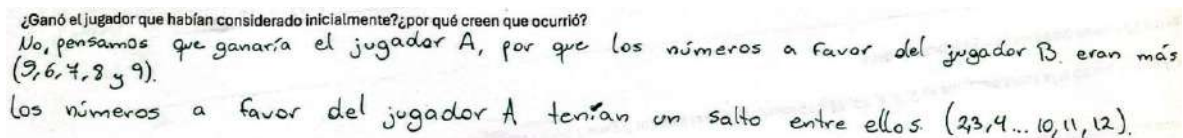 ¿Ganó el jugador que habían considerado inicialmente?¿por qué creen que ocurrió?
No, pensamos que ganaría el jugador A, por que los números a favor del jugador B. eran más
(5,6,7,8 y 9).
los números a favor del jugador A tenían un salto entre ellos. (2,3,4... 10, 11, 12).